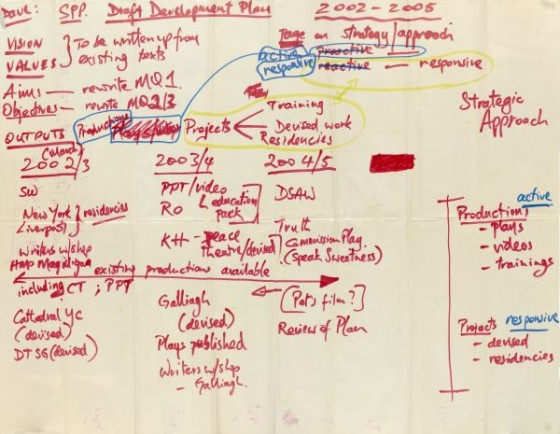 Dave: SPP. Draft Development Plan 2002-2005
VISION
VALUES } To be written up from existing texts
Page on strategy/approach
active proactive
responsive reactive — responsive
Aims — rewrite MQ1.
Objectives — rewrite MQ2/3
OUTPUTS Productions Projects
Training
Devised work
Residencies
Strategic
Approach
2002/3 2003/4 2004/5
SW
New York
(Liverpool) } residencies
Writers w/shop
HMP Magilligan
PPT/video
RO
education
pack
KH - peace
theatre/devised
DSAW
Truth
Commission Play.
(Speak Sweetness)
existing productions available
including CT ; PPT
Cathedral YC
(devised)
DTSG (devised)
Galliagh
(devised)
Plays published
Writers w/shop
- Galliagh.
(Pat's film?)
Review of Plan
active
Productions
- plays
- videos
- trainings
Projects responsive
- devised
- residencies